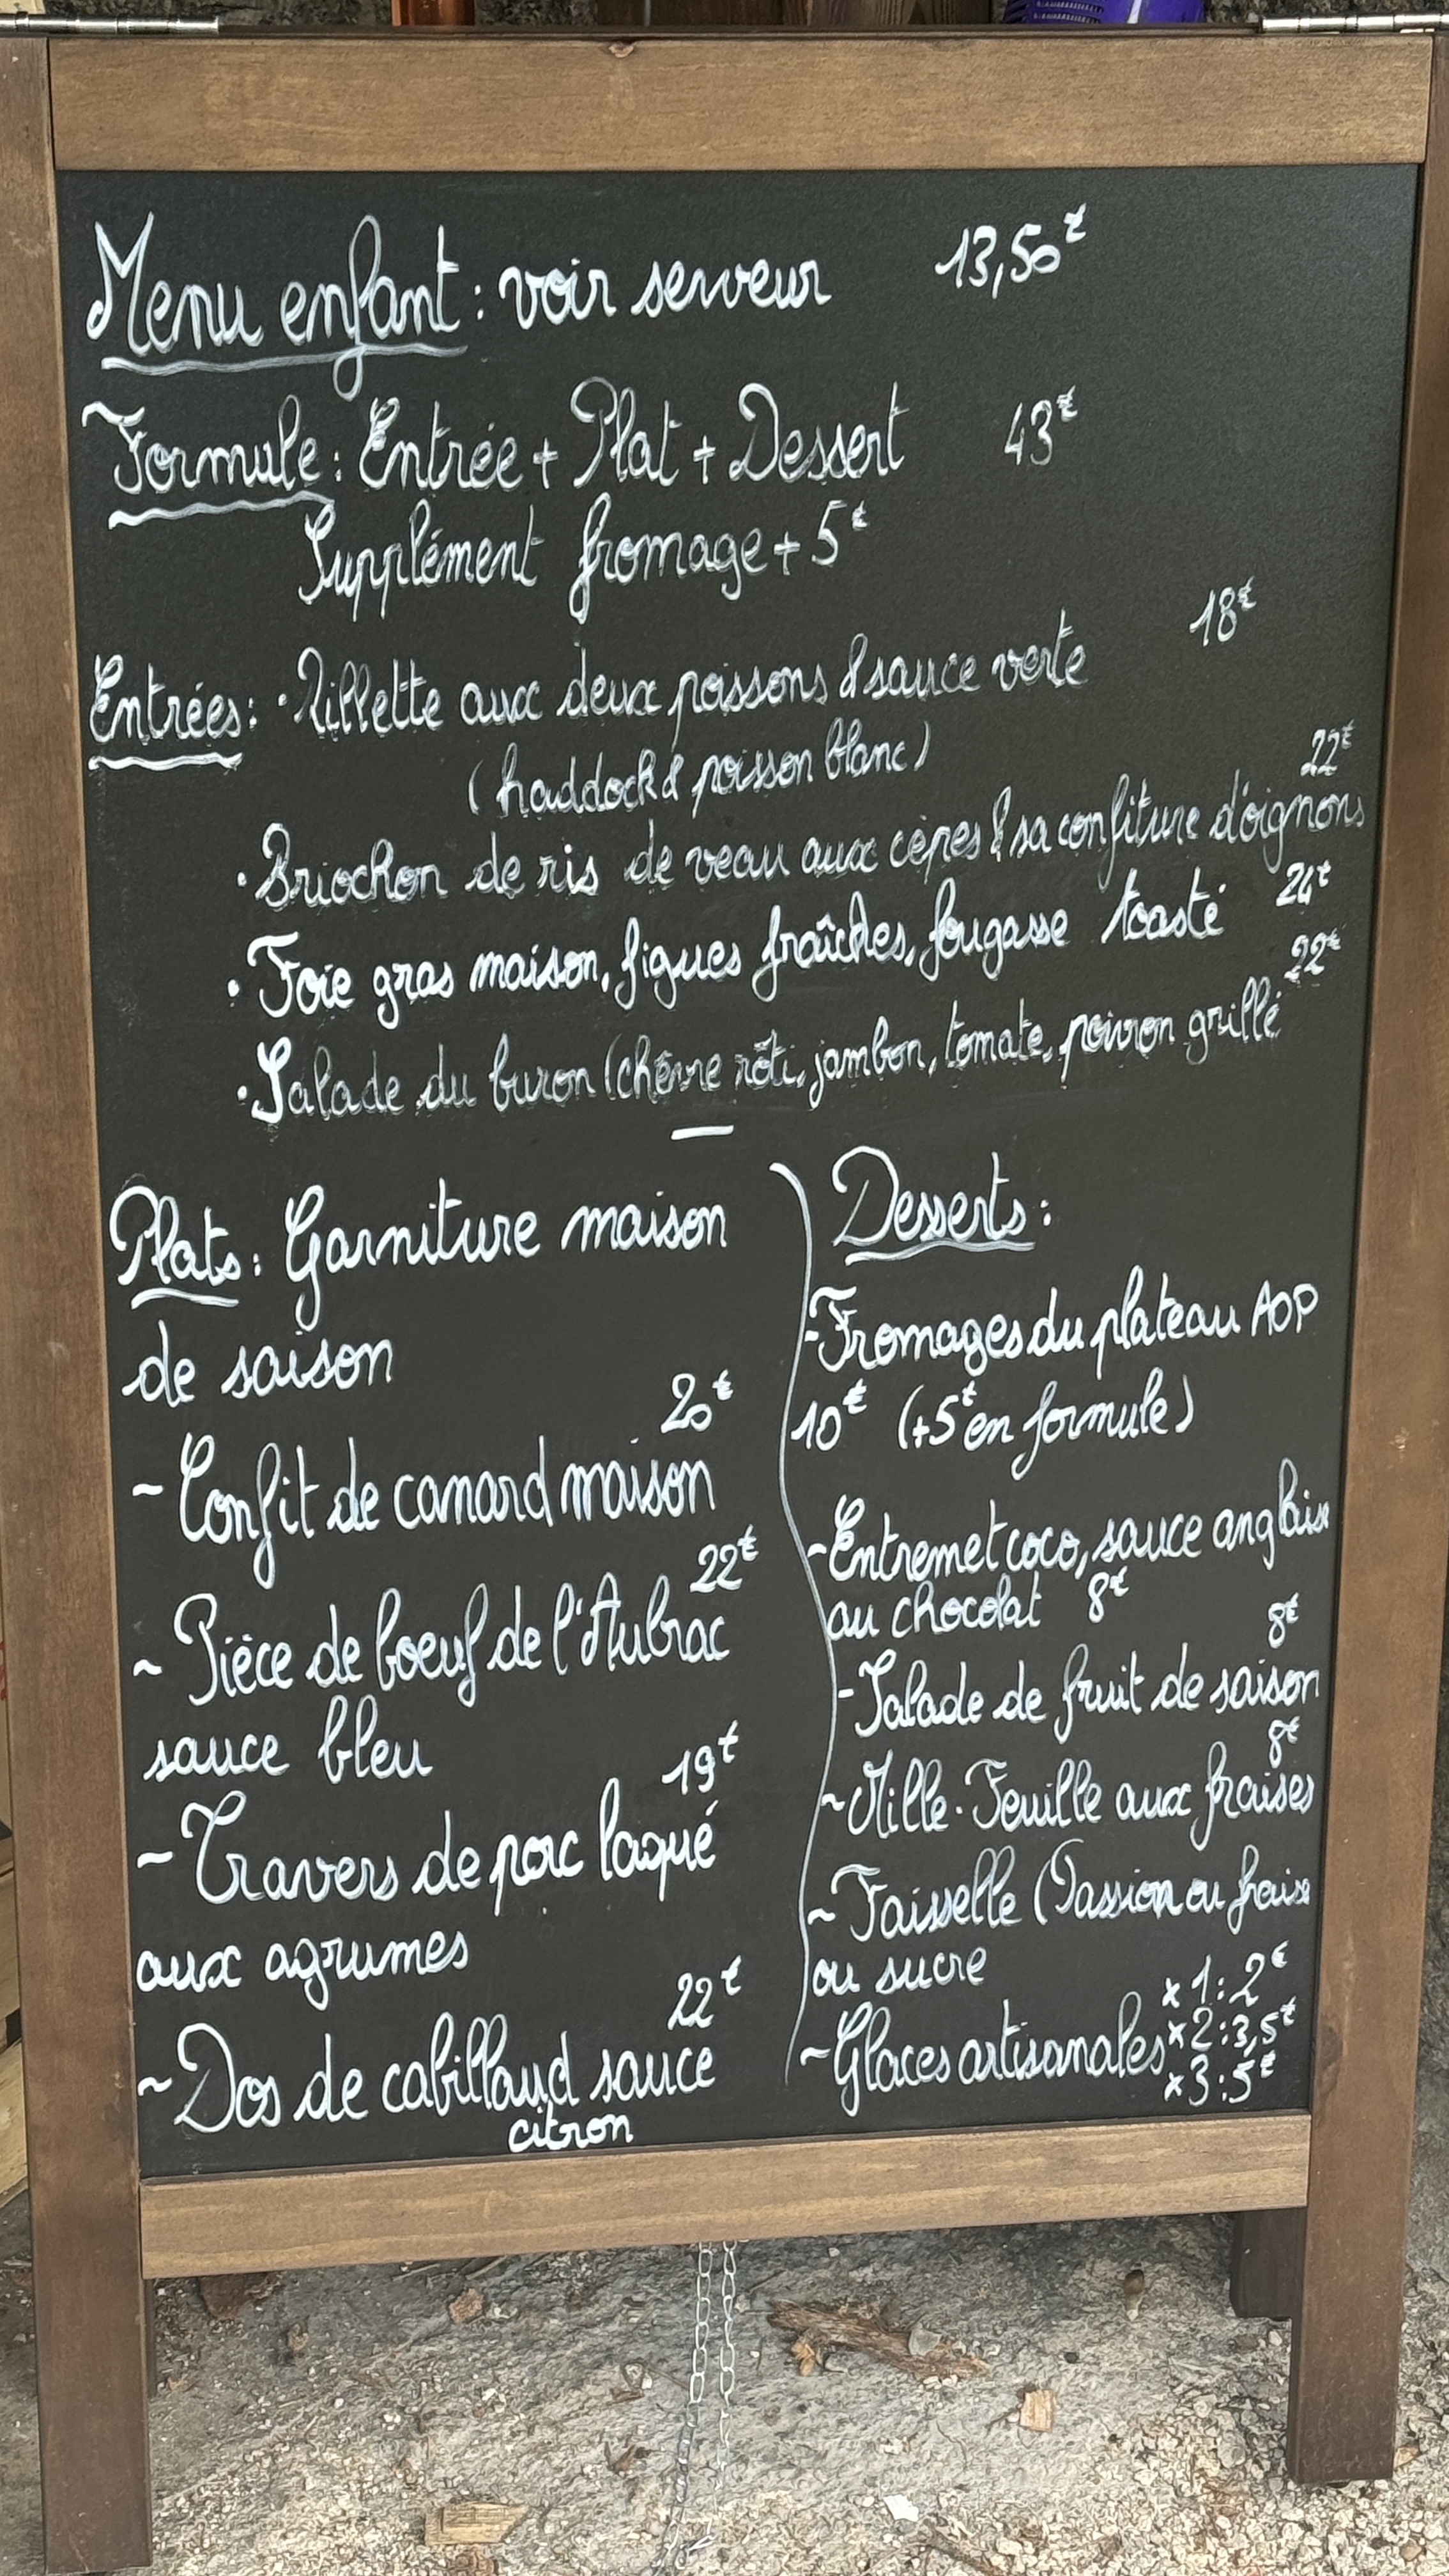 Menu enfant : voir serveur 13,50€
Formule : Entrée + Plat + Dessert 43€
Supplément fromage + 5€
18€
Entrées : · Rillette aux deux poissons & sauce verte
( haddock & poisson blanc )
22€
· Briochon de ris de veau aux cèpes & sa confiture d'oignons
· Foie gras maison, figues fraîches, fougasse toasté 24€
22€
· Salade du buron (chèvre rôti, jambon, tomate, poivron grillé
Plats : Garniture maison
de saison
20€
- Confit de canard maison
22€
- Pièce de boeuf de l'Aubrac
sauce bleu
19€
- Travers de porc laqué
aux agrumes
22€
- Dos de cabillaud sauce
citron
Desserts :
- Fromages du plateau AOP
10€ (+5€ en formule)
- Entremet coco, sauce anglaise
au chocolat 8€
8€
- Salade de fruit de saison
8€
- Mille-Feuille aux fraises
- Faisselle (Passion ou fraise
ou sucre
x 1 : 2€
- Glaces artisanales x 2 : 3,5€
x 3 : 5€